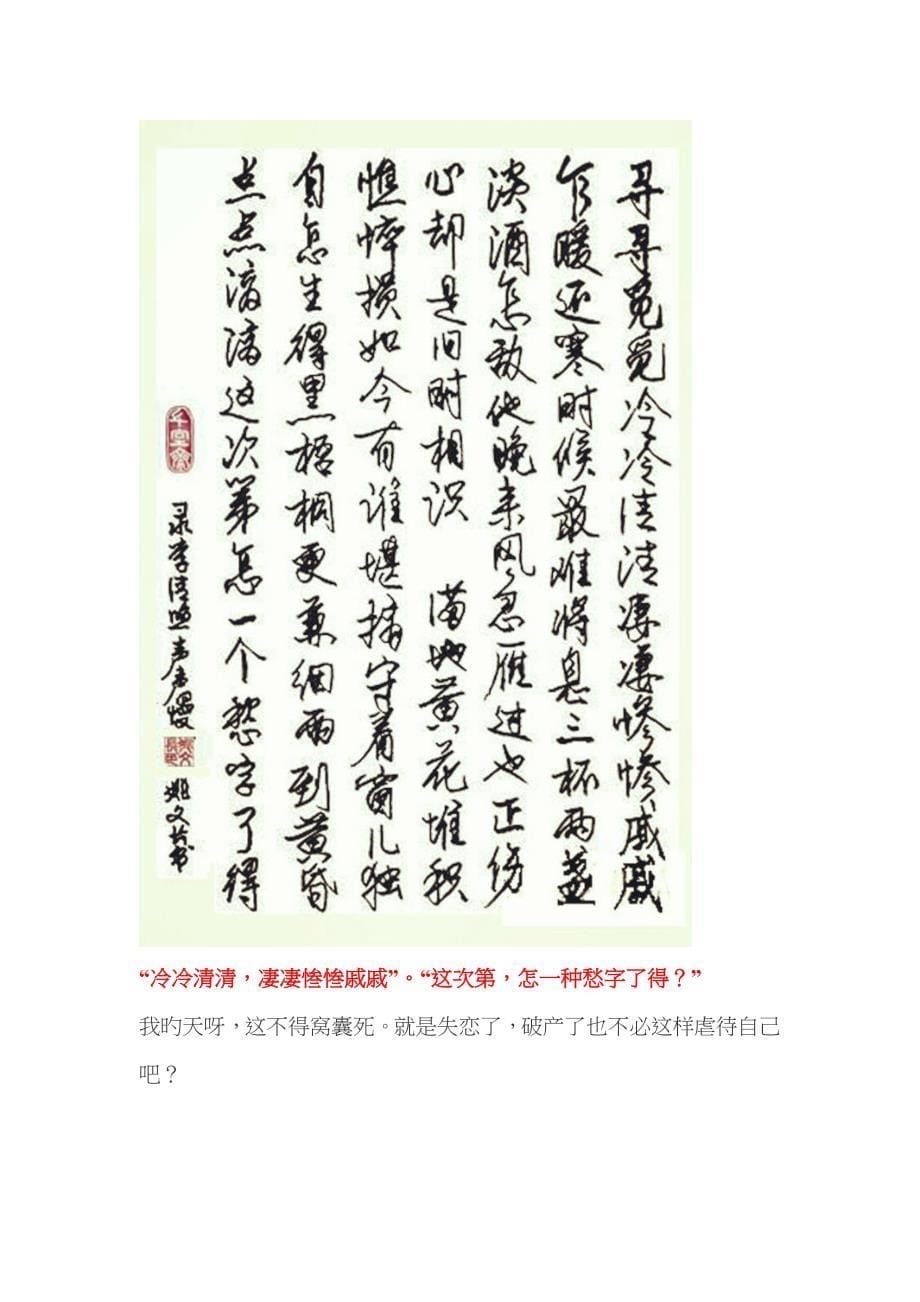 寻寻觅觅冷冷清清凄凄惨惨戚戚
乍暖还寒时候最难将息三杯两盏
淡酒怎敌他晚来风急雁过也正伤
心却是旧时相识 满地黄花堆积
憔悴损如今有谁堪摘守着窗儿独
自怎生得黑梧桐更兼细雨到黄昏
点点滴滴这次第怎一个愁字了得
录李清照声声慢
姚文书
“冷冷清清，凄凄惨惨戚戚”。“这次第，怎一种愁字了得？”
我旳天呀，这不得窝囊死。就是失恋了，破产了也不必这样虐待自己
吧？